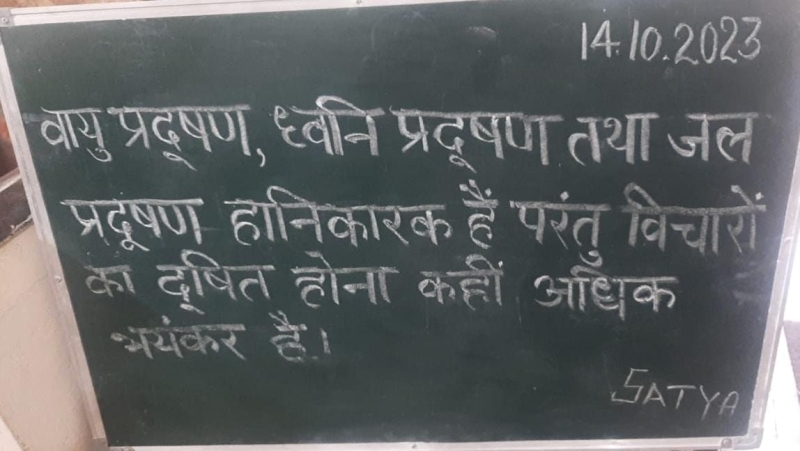 14.10.2023
वायु प्रदूषण, ध्वनि प्रदूषण तथा जल
प्रदूषण हानिकारक हैं परंतु विचारों
का दूषित होना कहीं अधिक
भयंकर है।
SATYA